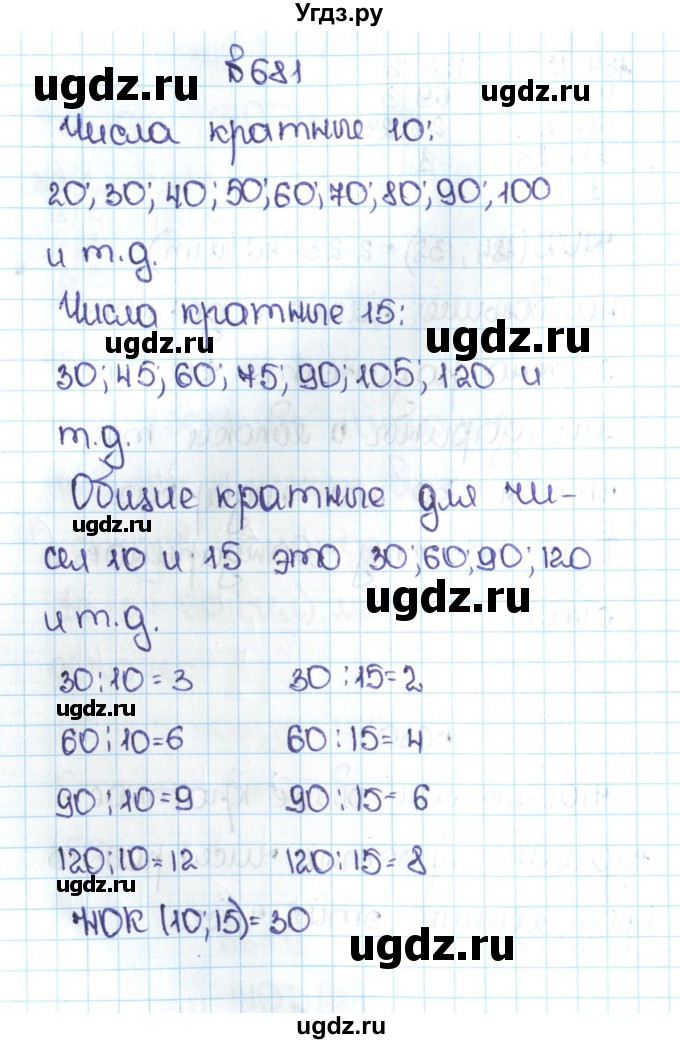 Угдз.ру
в 681
ugdz.ru ugdz.ru
Числа кратные 10:
20; 30; 40; 50; 60; 70; 80; 90; 100
и т.д.
Числа кратные 15:
ugdz.ru ugdz.ru
30; 45; 60; 75; 90; 105; 120 и
т.д.
Общие кратные для чи-
ugdz.ru
сел 10 и 15 это 30; 60; 90; 120
ugdz.ru
и т.д.
30:10=3 30:15=2
ugdz.ru
60:10=6 60:15=4
90:10=9 90:15=6
120:10=12 120:15=8
ugdz.ru
НОК (10; 15)=30
ugdz.ru
ugdz.ru